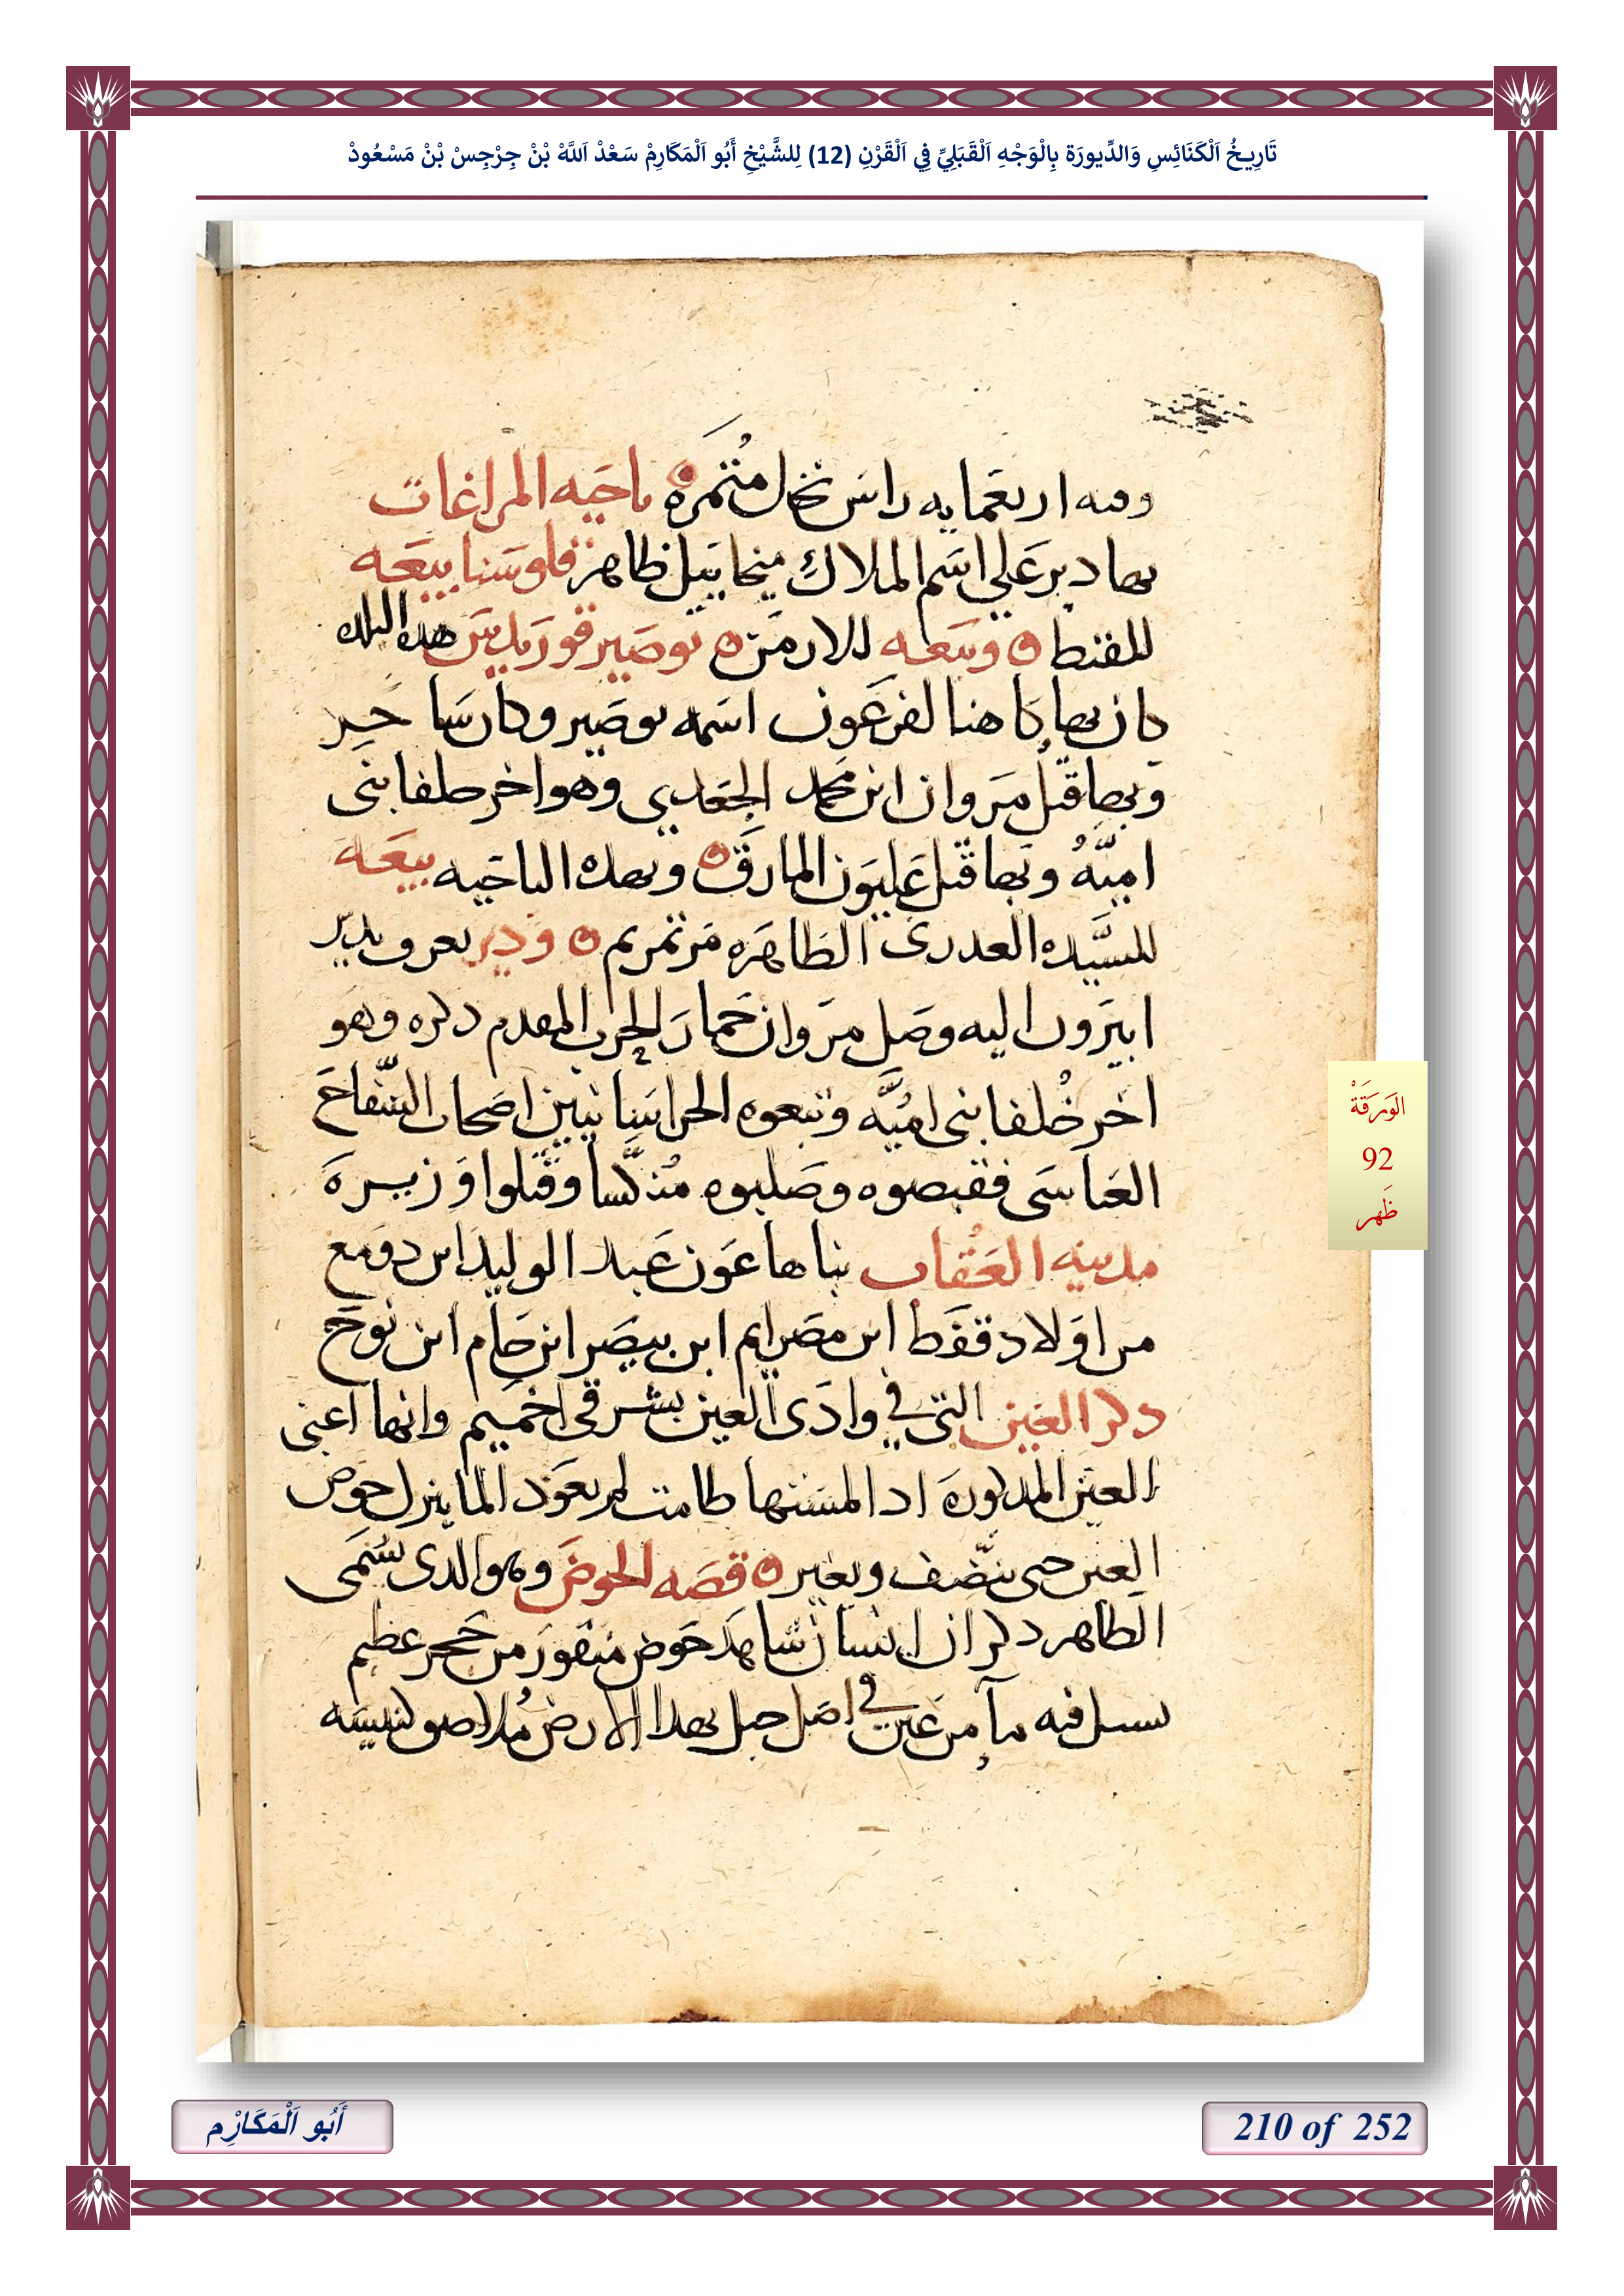 تَارِيخُ اَلْكَنَائِسِ وَالدِّيورَة بِالْوَجْهِ اَلْقَبَلِيِّ فِي اَلْقَرْنِ (12) لِلشَّيْخِ أَبُو اَلْمَكَارِمْ سَعْدْ اَللَّهْ بْنْ جِرْجِسْ بْنْ مَسْعُودْ
وفىه اربعمايه راس نخل متمره ناحيه المراغات
بها دير علي اسم الملاك ميخاييل ظاهر قلوسنا بيعه
للقبط وبيعه للارمن بوصير قوريدس هده البلده
كان بها كاهنا لفرعون اسمه بوصير وكان ساحر
وبها قتل مروان ابن محمد الجعدي وهو اخر خلفا بنى
اميه وبها قتل عليون المارق وبهده الناحيه بيعه
للسيده العدرى الطاهره مرتمريم ودير يعرف بدير
ابيرون اليه وصل مروان حمار الحرب المقدم دكره وهو
اخر خلفا بنى اميه وتبعوه الخراسانيين اصحاب السفاح
العباسى فقبصوه وصلبوه منكسا وقتلوا وزيره
مدينه العقاب بناها عون عبد الوليد ابن دومع
من اولاد قفط ابن مصرايم ابن بيصر ابن حام ابن نوح
دكر العين التي في وادى العين بشرقى اخميم وانها اعنى
العين المدكوره ادا لمستها طامت لم يعود الما ينزل حوض
العين حتى ينضف ويغير قصه الحوض وهو الدى يسمى
الطاهر دكر ان انسان شاهد حوض منقور من حجر عظيم
يسيل فيه ما من عين في اصل جبل بهدا الارض ملاصق كنيسه
الوَرَقَةْ
92
ظَهر
أَبُو اَلْمَكَارِْم
210 of 252